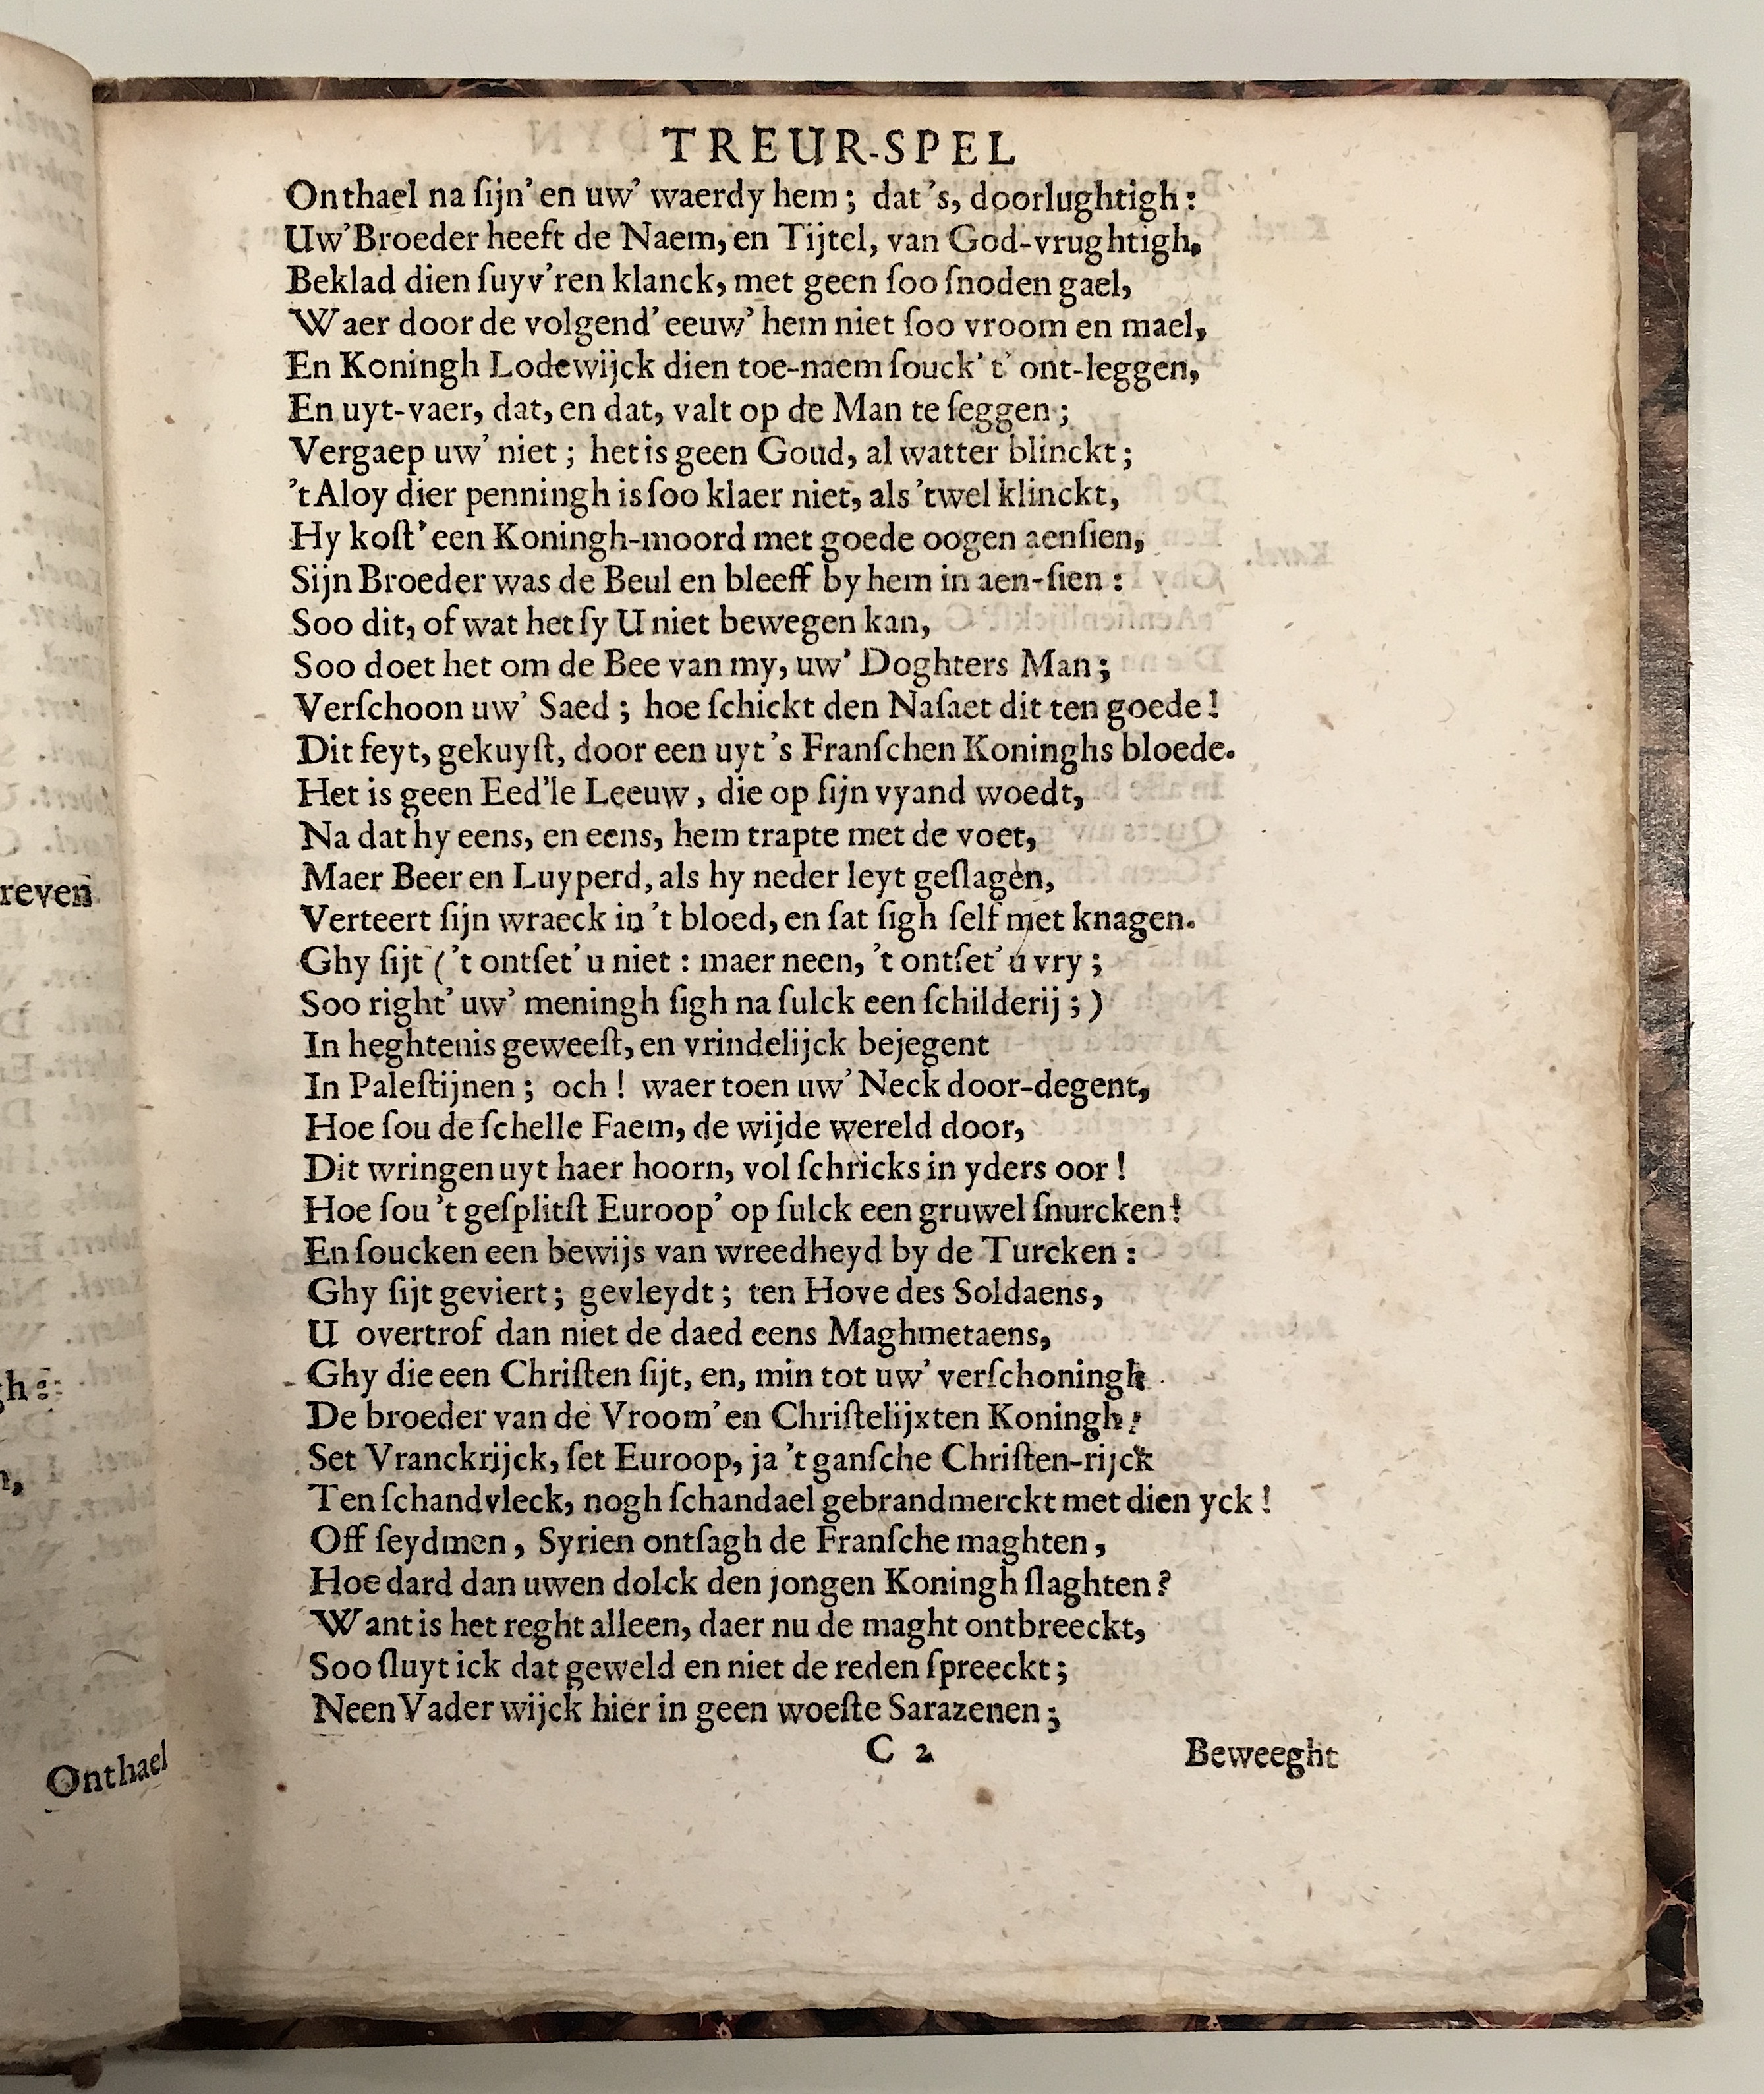 TREUR-SPEL
Onthael na ſijn' en uw' waerdy hem; dat 's, doorlughtigh:
Uw' Broeder heeft de Naem, en Tijtel, van God-vrughtigh,
Beklad dien ſuyv'ren klanck, met geen ſoo ſnoden gael,
Waer door de volgend' eeuw' hem niet ſoo vroom en mael,
En Koningh Lodewijck dien toe-naem ſouck' t' ont-leggen,
En uyt-vaer, dat, en dat, valt op de Man te ſeggen;
Vergaep uw' niet; het is geen Goud, al watter blinckt;
't Aloy dier penningh is ſoo klaer niet, als 't wel klinckt,
Hy koſt' een Koningh-moord met goede oogen aenſien,
Sijn Broeder was de Beul en bleeff by hem in aen-ſien:
Soo dit, of wat het ſy U niet bewegen kan,
Soo doet het om de Bee van my, uw' Doghters Man;
Verſchoon uw' Saed; hoe ſchickt den Naſaet dit ten goede!
Dit feyt, gekuyſt, door een uyt 's Franſchen Koninghs bloede.
Het is geen Eed'le Leeuw, die op ſijn vyand woedt,
Na dat hy eens, en eens, hem trapte met de voet,
Maer Beer en Luyperd, als hy neder leyt geſlagen,
Verteert ſijn wraeck in 't bloed, en ſat ſigh ſelf met knagen.
Ghy ſijt ('t ontſet' u niet: maer neen, 't ontſet' u vry;
Soo right' uw' meningh ſigh na ſulck een ſchilderij;)
In heghtenis geweeſt, en vrindelijck bejegent
In Paleſtijnen; och! waer toen uw' Neck door-degent,
Hoe ſou de ſchelle Faem, de wijde wereld door,
Dit wringen uyt haer hoorn, vol ſchricks in yders oor!
Hoe ſou 't geſplitſt Euroop' op ſulck een gruwel ſnurcken!
En ſoucken een bewijs van wreedheyd by de Turcken:
Ghy ſijt geviert; gevleydt; ten Hove des Soldaens,
U overtrof dan niet de daed eens Maghmetaens,
Ghy die een Chriſten ſijt, en, min tot uw' verſchoningh
De broeder van de Vroom' en Chriſtelijxten Koningh!
Set Vranckrijck, ſet Euroop, ja 't ganſche Chriſten-rijck
Ten ſchandvleck, nogh ſchandael gebrandmerckt met dien yck!
Off ſeydmen, Syrien ontſagh de Franſche maghten,
Hoe dard dan uwen dolck den jongen Koningh ſlaghten?
Want is het reght alleen, daer nu de maght ontbreeckt,
Soo ſluyt ick dat geweld en niet de reden ſpreeckt;
Neen Vader wijck hier in geen woeſte Sarazenen;
C 2 Beweeght
reven
Onthael